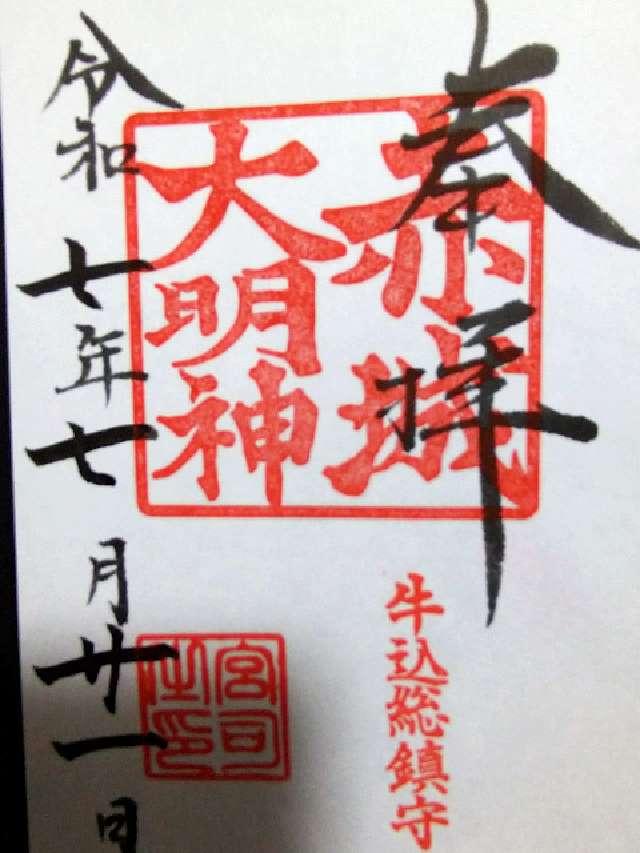 奉拝
赤城
大明神
牛込総鎮守
宮司
之印
令和七年七月廿一日